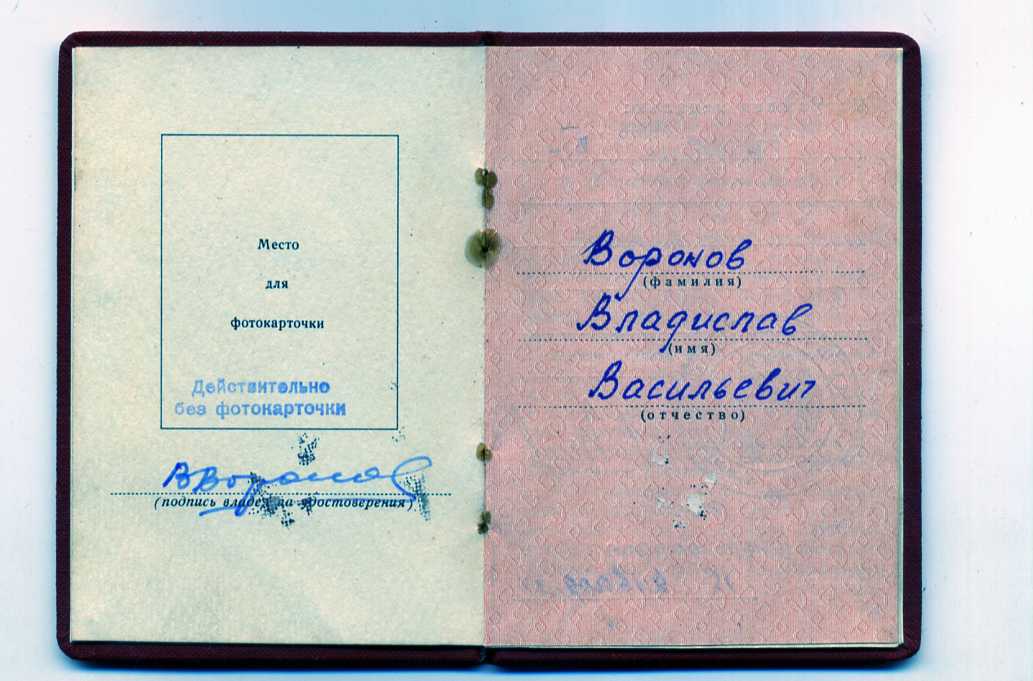 Место
для
фотокарточки
Действительно
без фотокарточки
ВВоронов
(подпись владельца удостоверения)
Воронов
(фамилия)
Владислав
(имя)
Васильевич
(отчество)